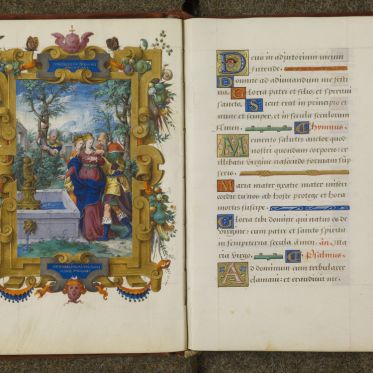 Deus in adjutorium meum
intende.
Domine ad adiuvandum me festi
na. Gloria patri et filio, et spiritui
sancto. Sicut erat in principio et
nunc et semper, et in secula seculorum
Amen. Hymnus
Memento salutis auctor quod
nostri quondam corporis, ex
illibata virgine nascendo formam sump
seris
Maria mater gratie mater miseri
cordie tu nos ab hoste protege et hora
mortis suscipe.
Gloria tibi domine qui natus es de
virgine: cum patre et sancto spiritu
in sempiterna secula. Amen. in
Maria virgo. Psalmus
Ad dominum cum tribularer
clamavi: et exaudivit me.